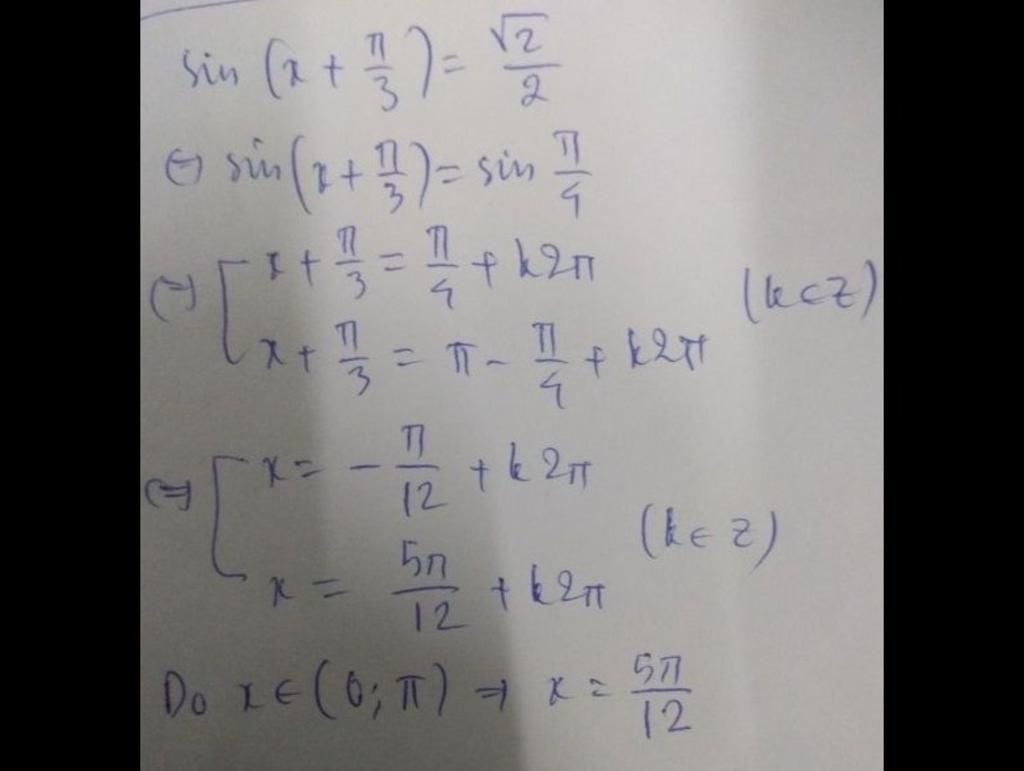 sin (x + π/3) = √2/2
⇔ sin (x + π/3) = sin π/4
⇔ [ x + π/3 = π/4 + k2π
x + π/3 = π - π/4 + k2π (k∈Z)
⇔ [ x = -π/12 + k2π
x = 5π/12 + k2π (k∈Z)
Do x∈(0;π) ⇒ x = 5π/12